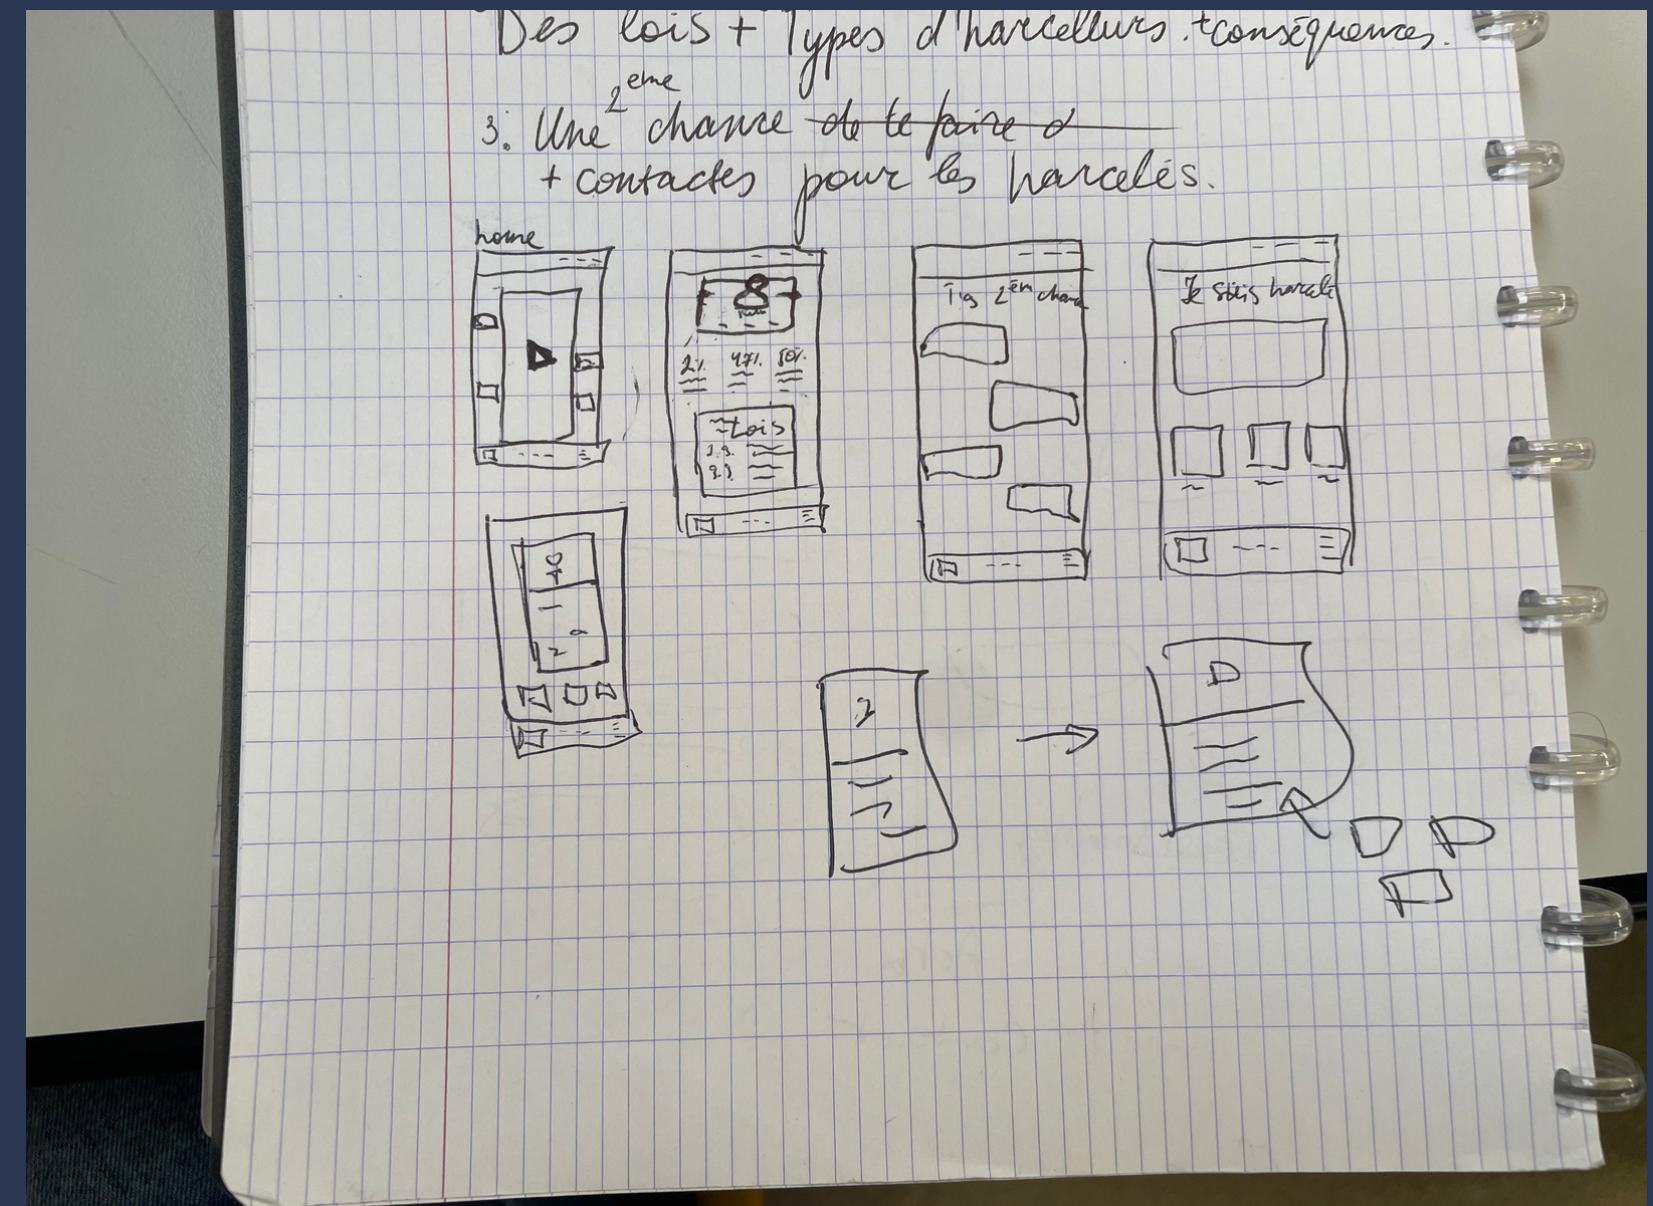 Des lois + Types d'harcelleurs. + conséquences.
2eme
3. Une chance de te faire d
+ contactes pour les harcelés.
home
2% 47% 80%
Lois
Ta 2èm chance
Je suis harcelé
2